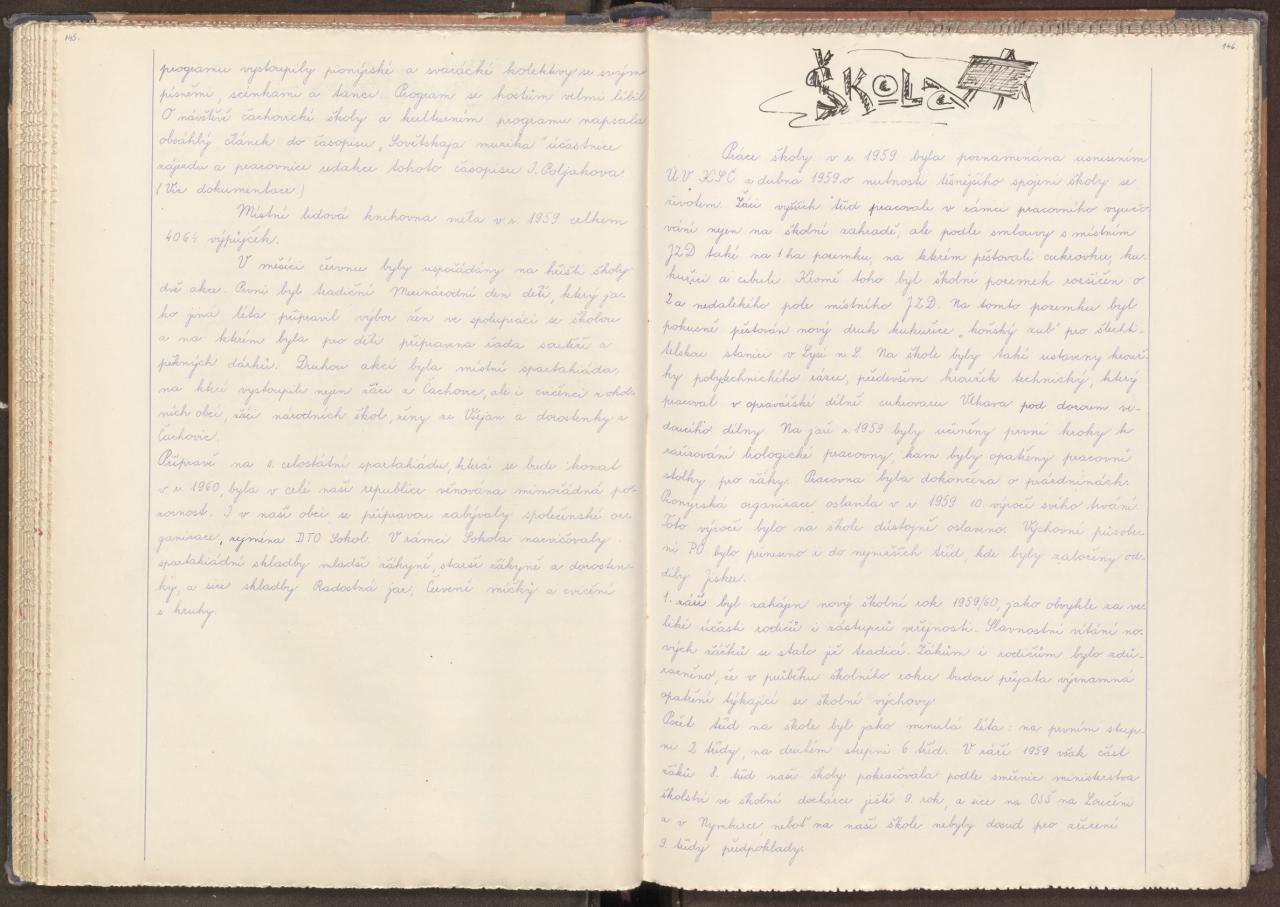 145.
programu vystoupily pionýrské a svazácké kolektivy se svými
písněmi, scénkami a tanci. Program se hostům velmi líbil.
O návštěvě čachovické školy a kulturním programu napsala
obsáhlý článek do časopisu "Sovětskaja muzika" účastnice
zájezdu a pracovnice redakce tohoto časopisu I. Poljakova.
(Viz dokumentace.)
Místní lidová knihovna měla v r. 1959 celkem
4064 výpůjček.
V měsíci červnu byly uspořádány na hřišti školy
dvě akce. První byl tradiční Mezinárodní den dětí, který ja-
ko jiná léta připravil výbor žen ve spolupráci se školou
a na kterém byla pro děti připravena řada soutěží a
pěkných dárků. Druhou akcí byla místní spartakiáda,
na které vystoupili nejen žáci z Čachovic, ale i cvičenci z okol-
ních obcí, žáci národních škol, ženy ze Všejan a dorostenky z
Čachovic.
Přípravě na II. celostátní spartakiádu, která se bude konat
v r. 1960, byla v celé naší republice věnována mimořádná po-
zornost. I v naší obci se přípravou zabývaly společenské or-
ganizace, zejména DTO Sokol. V rámci Sokola nacvičovaly
spartakiádní skladby mladší žákyně, starší žákyně a dorosten-
ky, a sice skladby Radostná jar, Červené míčky a cvičení
s kruhy.
146.
ŠKOLA
Práce školy v r. 1959 byla poznamenána usnesením
ÚV KSČ z dubna 1959 o nutnosti těsnějšího spojení školy se
životem. Žáci vyšších tříd pracovali v rámci pracovního vyučo-
vání nejen na školní zahradě, ale podle smlouvy s místním
JZD také na 1 ha pozemku, na kterém pěstovali cukrovku, ku-
kuřici a cibuli. Kromě toho byl školní pozemek rozšířen o
2 a nedalekého pole místního JZD. Na tomto pozemku byl
pokusně pěstován nový druh kukuřice "koňský zub" pro šlecht-
telskou stanici v Lysé n. L. Na škole byly také ustaveny krouž-
ky polytechnického rázu, především kroužek technický, který
pracoval v opravářské dílně cukrovaru Vlkava pod dozorem ve-
doucího dílny. Na jaře r. 1959 byly učiněny první kroky k
zařizování biologické pracovny, kam byly opatřeny pracovní
stolky pro žáky. Pracovna byla dokončena o prázdninách.
Pionýrská organizace oslavila v r. 1959 10. výročí svého trvání.
Toto výročí bylo na škole důstojně oslaveno. Výchovné působe-
ní PO bylo přeneseno i do nejnižších tříd, kde byly založeny od-
díly Jisker.
1. září byl zahájen nový školní rok 1959/60, jako obvykle za ve-
liké účasti rodičů i zástupců veřejnosti. Slavnostní vítání no-
vých žáčků se stalo již tradicí. Žákům i rodičům bylo zdů-
razněno, že v průběhu školního roku budou přijata významná
opatření týkající se školní výchovy.
Počet tříd na škole byl jako minulá léta: na prvním stup-
ni 2 třídy, na druhém stupni 6 tříd. V září 1959 však část
žáků 8. tříd naší školy pokračovala podle směrnic ministerstva
školství ve školní docházce ještě 9. rok, a sice na OSŠ na Loučeni
a v Nymburce, neboť na naší škole nebyly dosud pro zřízení
9. třídy předpoklady.